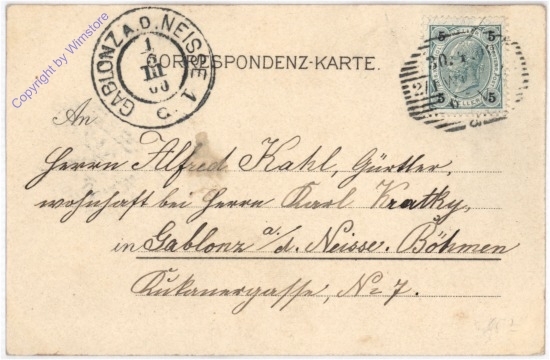 Copyright by Wimstore
GABLONZ A.D. NEISSE 1
1
III
00
5 5
5 5
HELLER
CORRESPONDENZ-KARTE.
An
Herrn Alfred Kahl, Gürtler,
wohnhaft bei Herrn Karl Kratky,
in Gablonz a./d. Neisse. Böhmen
Kukanergasse, No 7.